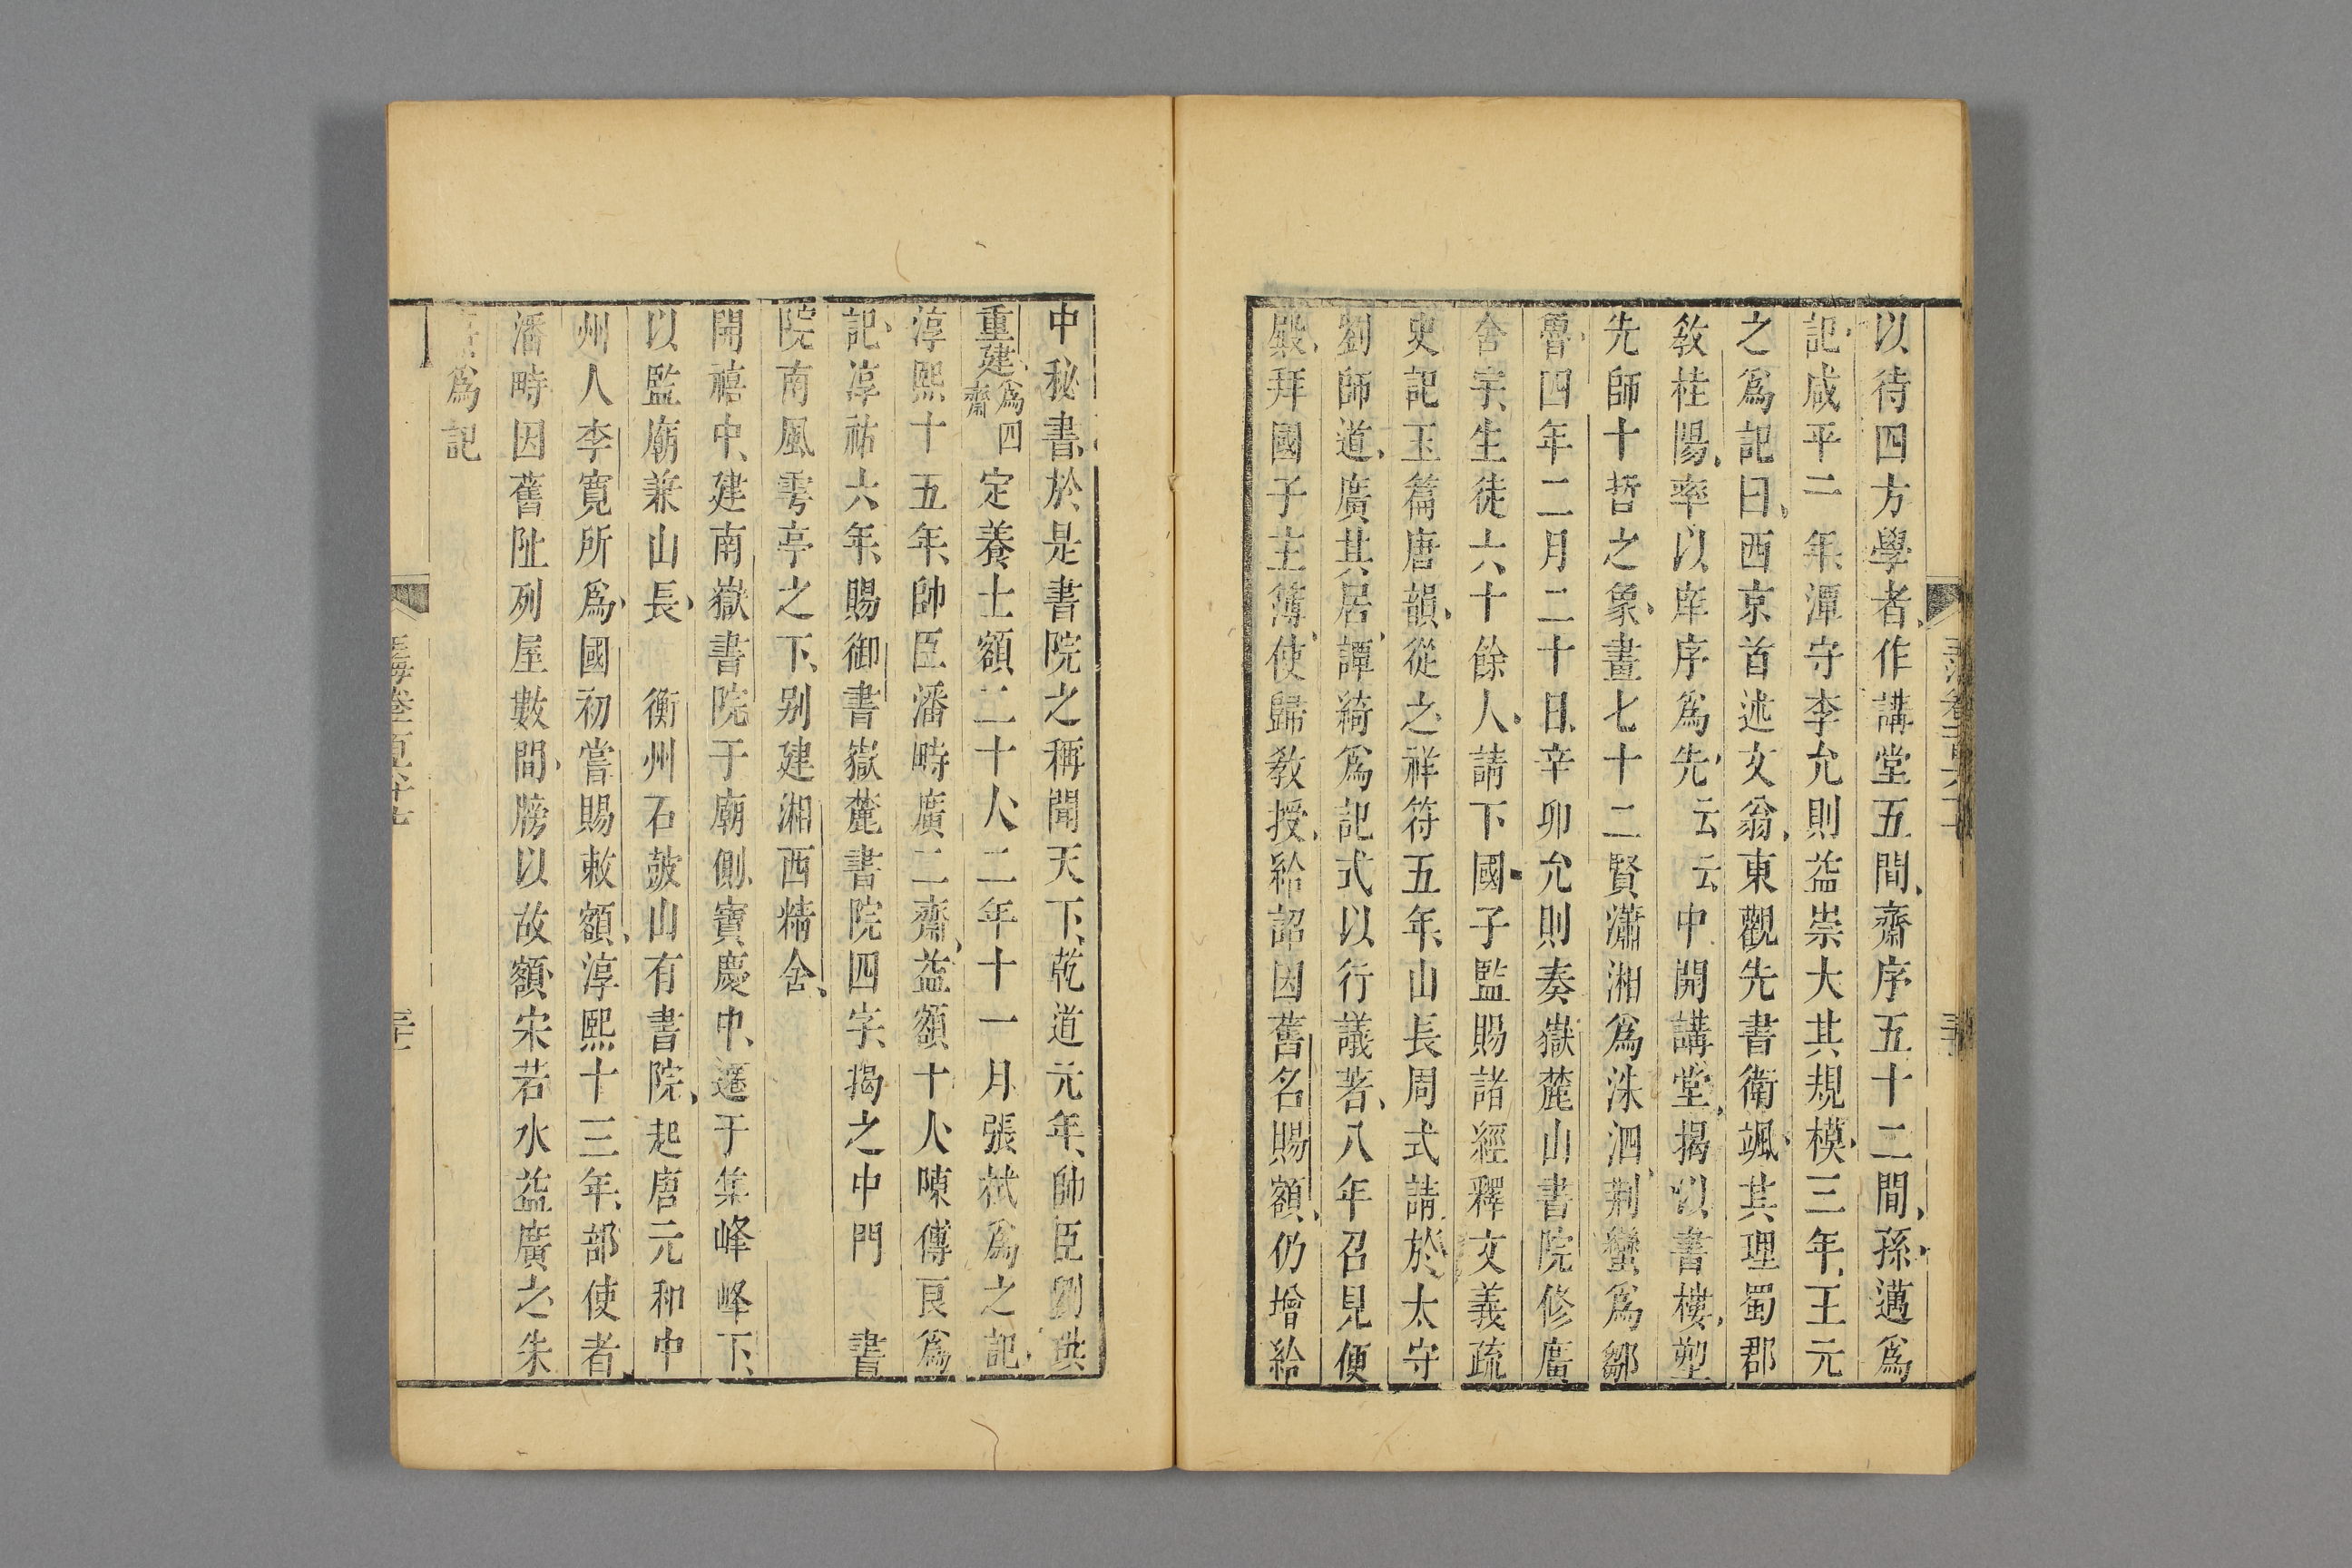 以待四方學者、作講堂五間、齋序五十二間、孫邁爲
記、咸平二年、潭守李允則益崇大其規模、三年、王元
之爲記曰、西京首述文翁、東觀先書衛颯、其理蜀郡
敎桂陽、率以庠序爲先、云云、中開講堂、揭以書樓、塑
先師十哲之象、畫七十二賢、瀟湘爲洙泗、荆蠻爲鄒
魯、四年二月二十日、辛卯允則奏嶽麓山書院修廣
舍宇、生徒六十餘人、請下國子監賜諸經釋文義疏
史記玉篇唐韻、從之、祥符五年、山長周式請於太守
劉師道、廣其居、譚綺爲記、式以行議著、八年召見便
殿、拜國子主簿、使歸敎授、給詔因舊名賜額、仍增給
中秘書、於是書院之稱聞天下、乾道元年、帥臣劉珙
重建、爲四齋定養士額二十人、二年十一月張栻爲之記、
淳熙十五年、帥臣潘畤廣二齋、益額十人、陳傅良爲
記、淳祐六年、賜御書嶽麓書院四字、揭之中門 書
院南風雩亭之下、别建湘西精舍、
開禧中、建南嶽書院于廟側、寶慶中、遷于集峰峰下、
以監廟兼山長、 衡州石鼓山有書院、起唐元和中
州人李寬所爲、國初嘗賜敕額、淳熙十三年、部使者
潘畤因舊阯列屋數間、牓以故額、宋若水益廣之、朱
爲記